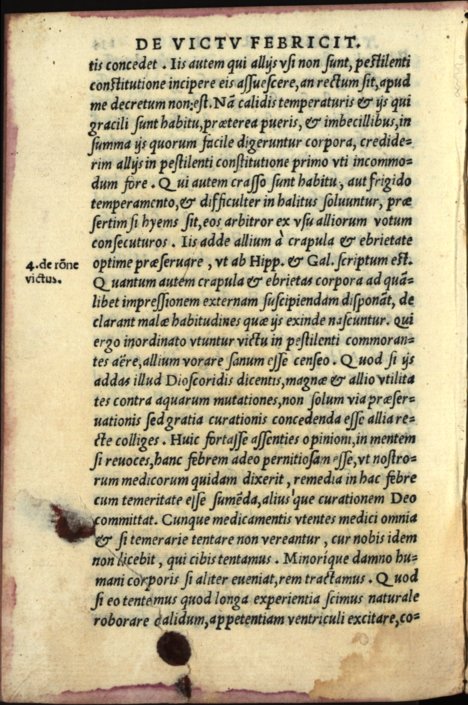 DE VICTV FEBRICIT.
tis concedet . Iis autem qui allijs vsi non sunt, pestilenti
constitutione incipere eis assuescere, an rectum sit, apud
me decretum non est. Nã calidis temperaturis & ijs qui
gracili sunt habitu, præterea pueris, & imbecillibus, in
summa ijs quorum facile digeruntur corpora, credide=
rim allijs in pestilenti constitutione primo vti incommo=
dum fore . Qui autem crasso sunt habitu, aut frigido
temperamento, & difficulter in halitus soluuntur, præ
sertim si hyems sit, eos arbitror ex vsu alliorum votum
consecuturos . Iis adde allium à crapula & ebrietate
optime præseruare , vt ab Hipp. & Gal. scriptum est.
4. de rõne
victus.
Quantum autem crapula & ebrietas corpora ad quã=
libet impressionem externam suscipiendam disponãt, de
clarant malæ habitudines quæ ijs exinde nascuntur. qui
ergo inordinato vtuntur victu in pestilenti commoran=
tes aëre, allium vorare sanum esse censeo . Quod si ijs
addas illud Dioscoridis dicentis, magnæ & allio vtilita
tes contra aquarum mutationes, non solum via præser=
uationis sed gratia curationis concedenda esse allia re=
cte colliges . Huic fortasse assenties opinioni, in mentem
si reuoces, hanc febrem adeo pernitiosam esse, vt nostro=
rum medicorum quidam dixerit , remedia in hac febre
cum temeritate esse sumẽda, alius que curationem Deo
committat. Cunque medicamentis vtentes medici omnia
& si temerarie tentare non vereantur , cur nobis idem
non licebit , qui cibis tentamus . Minorique damno hu=
mani corporis si aliter eueniat, rem tractamus . Quod
si eo tentemus quod longa experientia scimus naturale
roborare calidum, appetentiam ventriculi excitare, co=